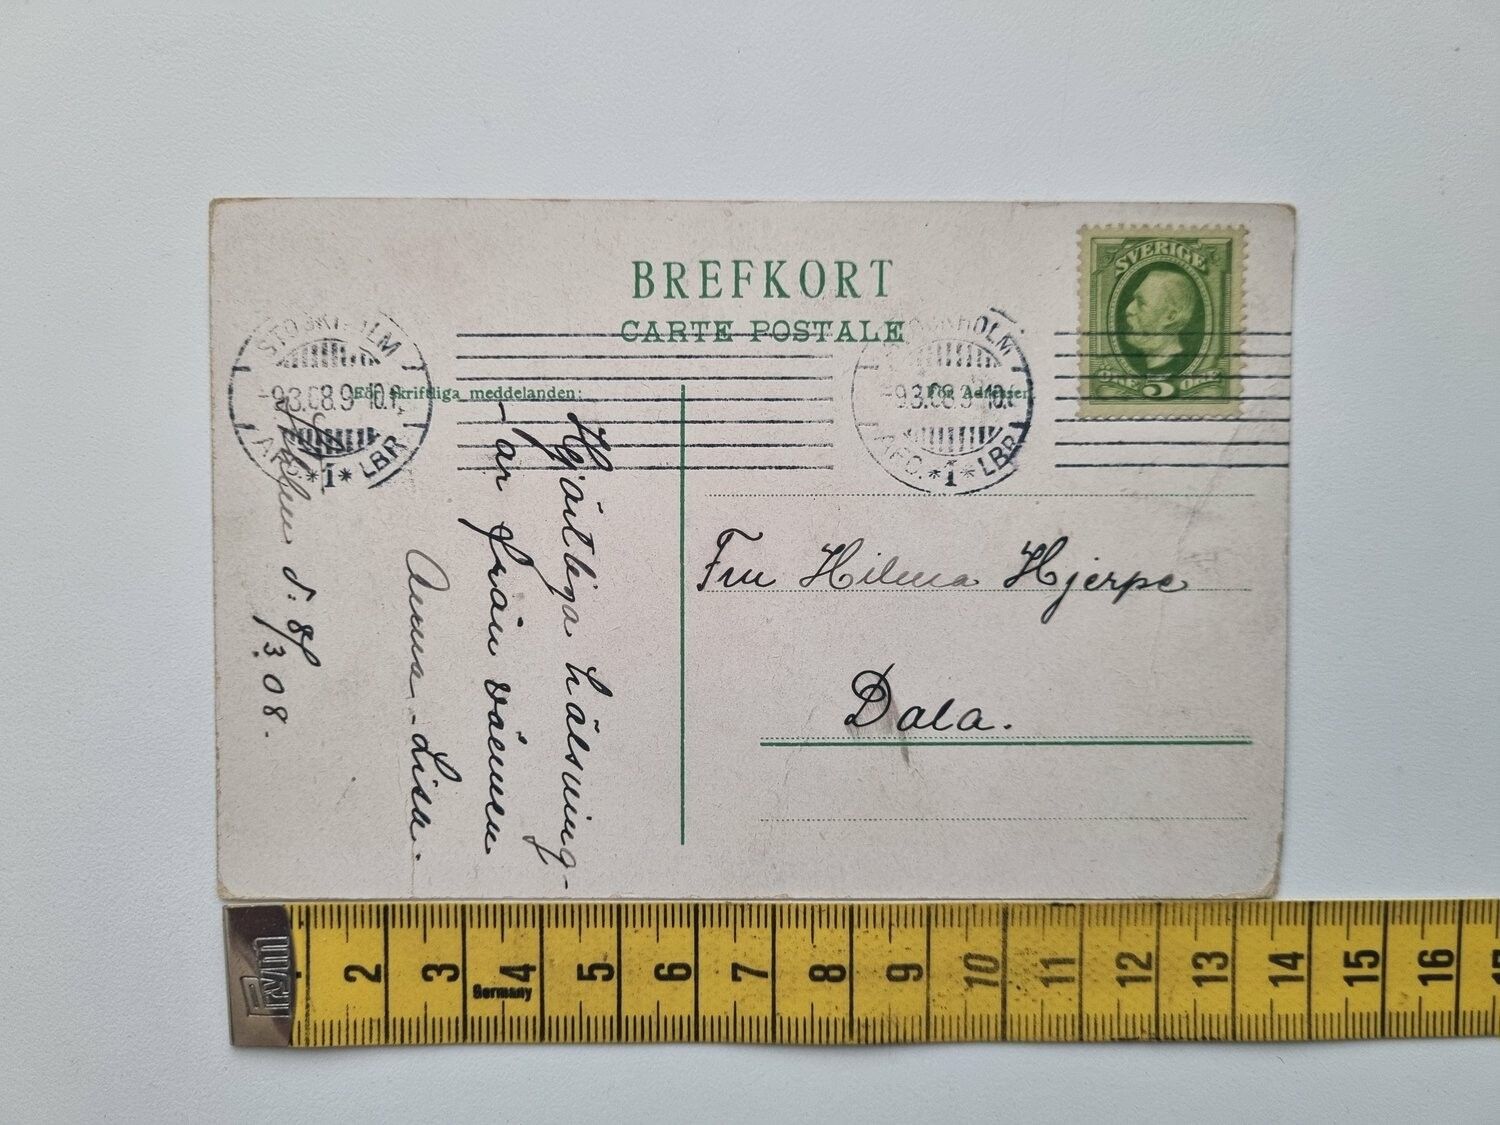 BREFKORT
CARTE POSTALE
SVERIGE
ÖRE 5 ÖRE
STOCKHOLM
-9.3.08.9-10.F.
AFD. *1* LBR.
STOCKHOLM
-9.3.08.9-10.F
AFD. *1* LBR.
För skriftliga meddelanden:
För Adressen.
Hjärtliga hälsning-
ar från vännen
Anna-Lisa.
d. 8/3.08.
Fru Hilma Hjerpe
Dala.
Prym
2 3 4 5 6 7 8 9 10 11 12 13 14 15 16
Germany